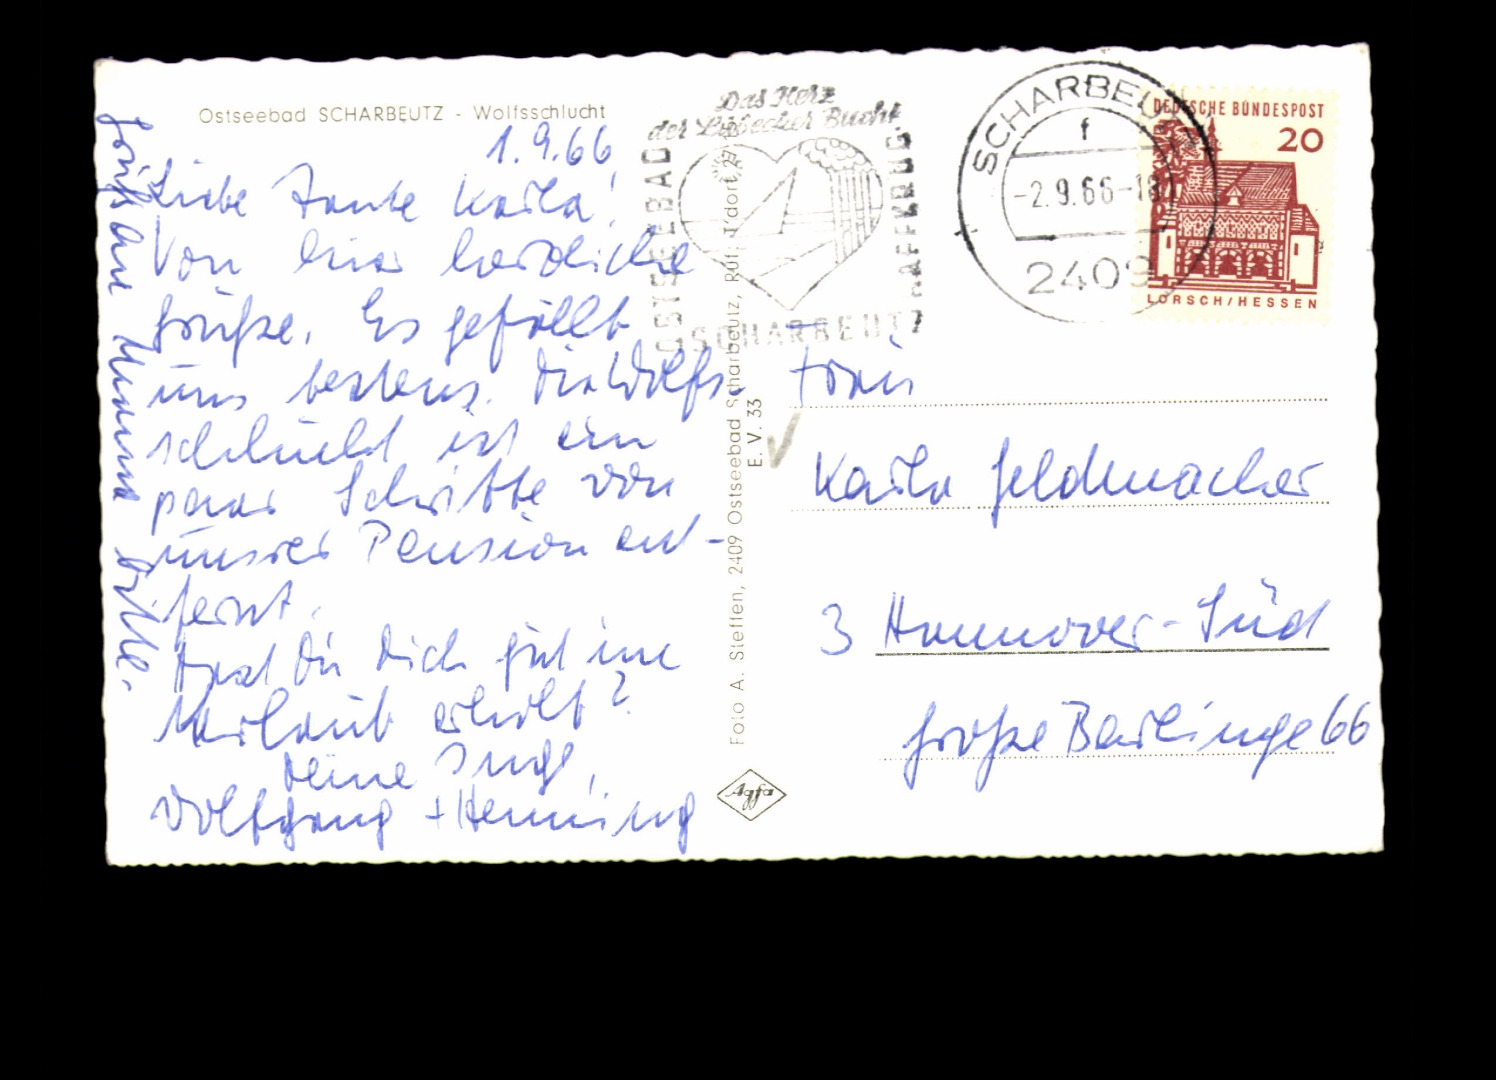 Ostseebad SCHARBEUTZ - Wolfsschlucht
1.9.66
Liebe Tante Karla!
Von hier herzliche
Grüße. Es gefällt
uns bestens. Die Wolfs-
schlucht ist ein
paar Schritte von
unsrer Pension ent-
fernt.
Hast Du Dich gut im
Urlaub erholt?
Deine Inge,
Wolfgang + Henning
Grüß an
Foto A. Steffen, 2409 Ostseebad Scharbeutz, Ruf: T'dorf 27
E. V. 33
Agfa
Das Herz
der Lübecker Bucht
OSTSEEBAD
SCHARBEUTZ
HAFFKRUG
SCHARBEUTZ
f
-2.9.66-18
2409
DEUTSCHE BUNDESPOST
20
LORSCH/HESSEN
Frau
Karla Geldmacher
3 Hannover-Süd
Große Barlinge 66